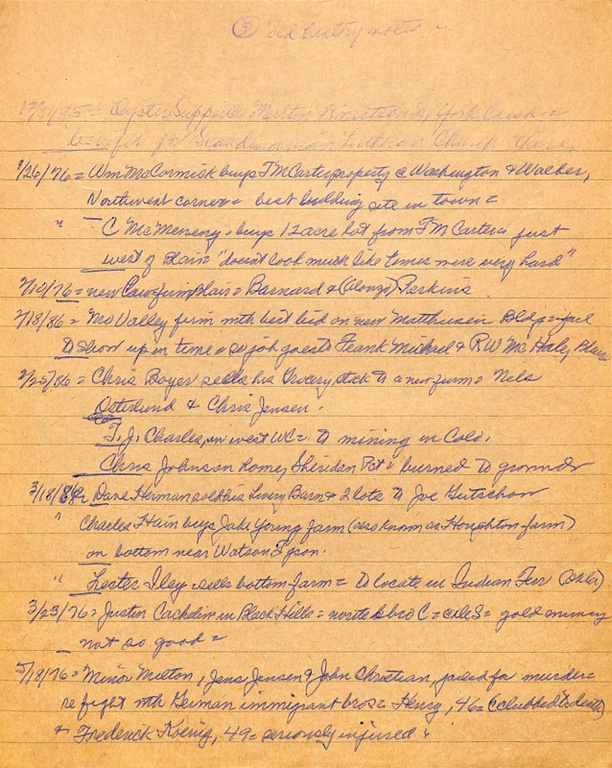 ③ old history notes --
12/31/75 = Oyster Supper Milton York Creek =
benefit for Scandinavian Lutheran Church
1/26/76 = Wm McCormick buys F M Carter property @ Washington & Walker,
Northwest corner = best building site in town =
" C McMeneny = buys 12 acre lot from F M Carter = just
west of Blair "doesn't look much like times were very hard"
2/10/76 = new Law firm Blair = Barnard & (Alonzo) Perkins
2/18/86 = Mo Valley firm with best bid on new Matthiesen Bldg = fail
to show up on time = so job goes to Frank Michael & R W McHaley Blair
2/25/86 = Chris Boyer sells his Grocery stock to a new firm = Nels
Osterlund & Chris Jensen.
T. J. Charles, in west WC = to mining in Colo.
Chris Johnson Home, Sheridan Pct = burned to ground
3/18/86 = Dave Herman sold his Livery Barn & 2 lots to Joe Gutschow
" Charles Hain buys Jake Young farm (also known as Houghton farm)
on bottom near Watson Tyson.
" Lester Iley sells bottom farm = to locate in Indian Terr (Okla)
3/23/76 = Justin in Black Hills = wrote bro C = = gold mining
not so good =
5/18/76 = Minor Milton, Jens Jensen & John Christian, jailed for murder =
re fight with German immigrant bros = Henry, 46 = (clubbed to death)
& Frederick Koenig, 49 = seriously injured.